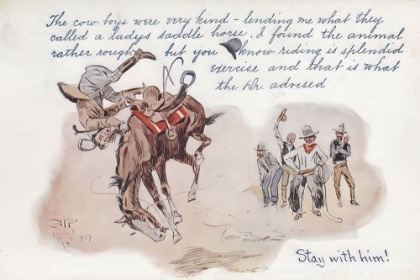 The cow boys were very kind - lending me what they
called a ladys saddle horse, I found the animal
rather rough but you know riding is splendid
exercise and that is what
the Dr. advised
CMR
1907
Stay with him!